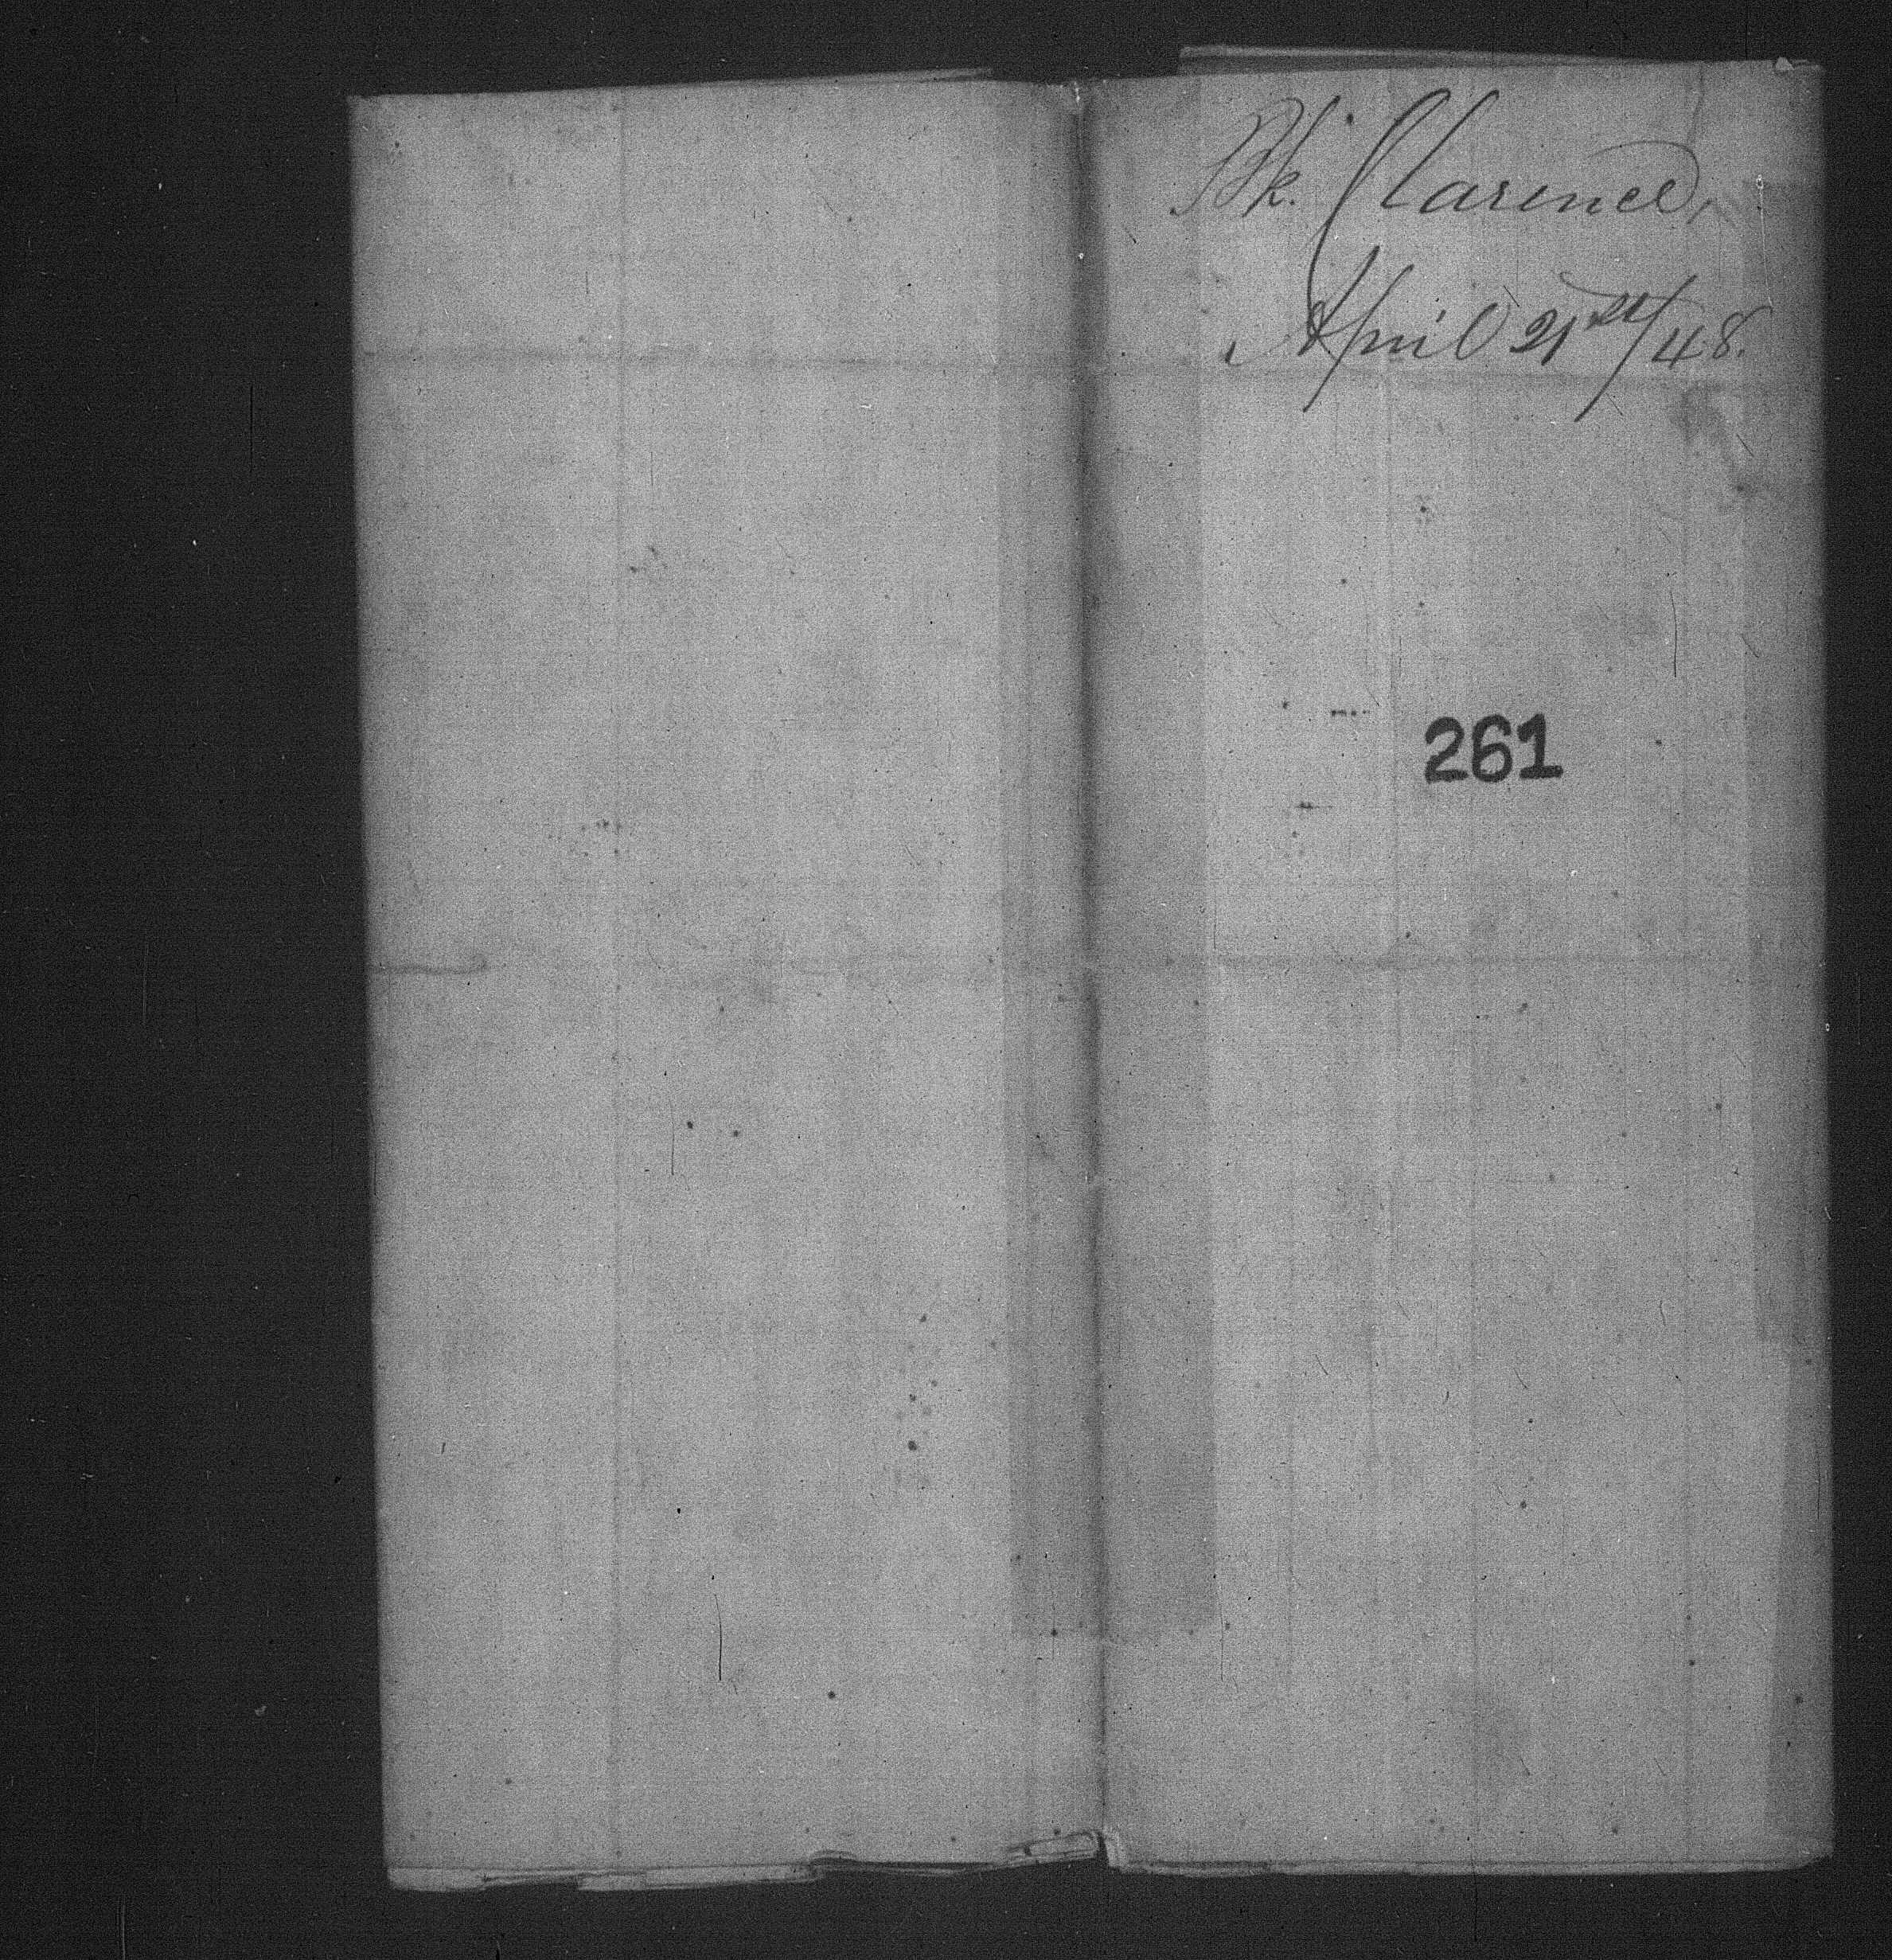 Bk. Clarence,
April 21st/48.
261